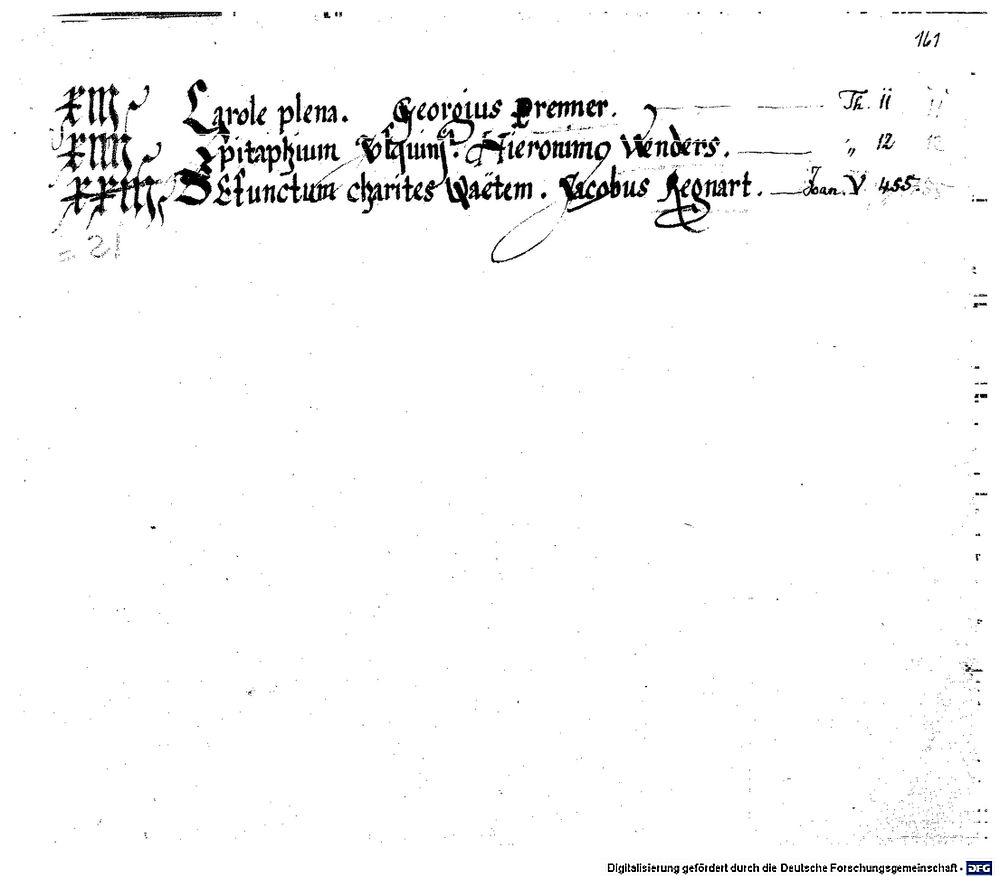 161
XIII Carole plena. Georgius Prenner. Th. 11 11
XIIII Epitaphium Hieronimo Venders. „ 12 12
XXIII DEfunctum charites Vaëtem. Jacobus Regnart. Joan. V 455.
= 21
Digitalisierung gefördert durch die Deutsche Forschungsgemeinschaft - DFG